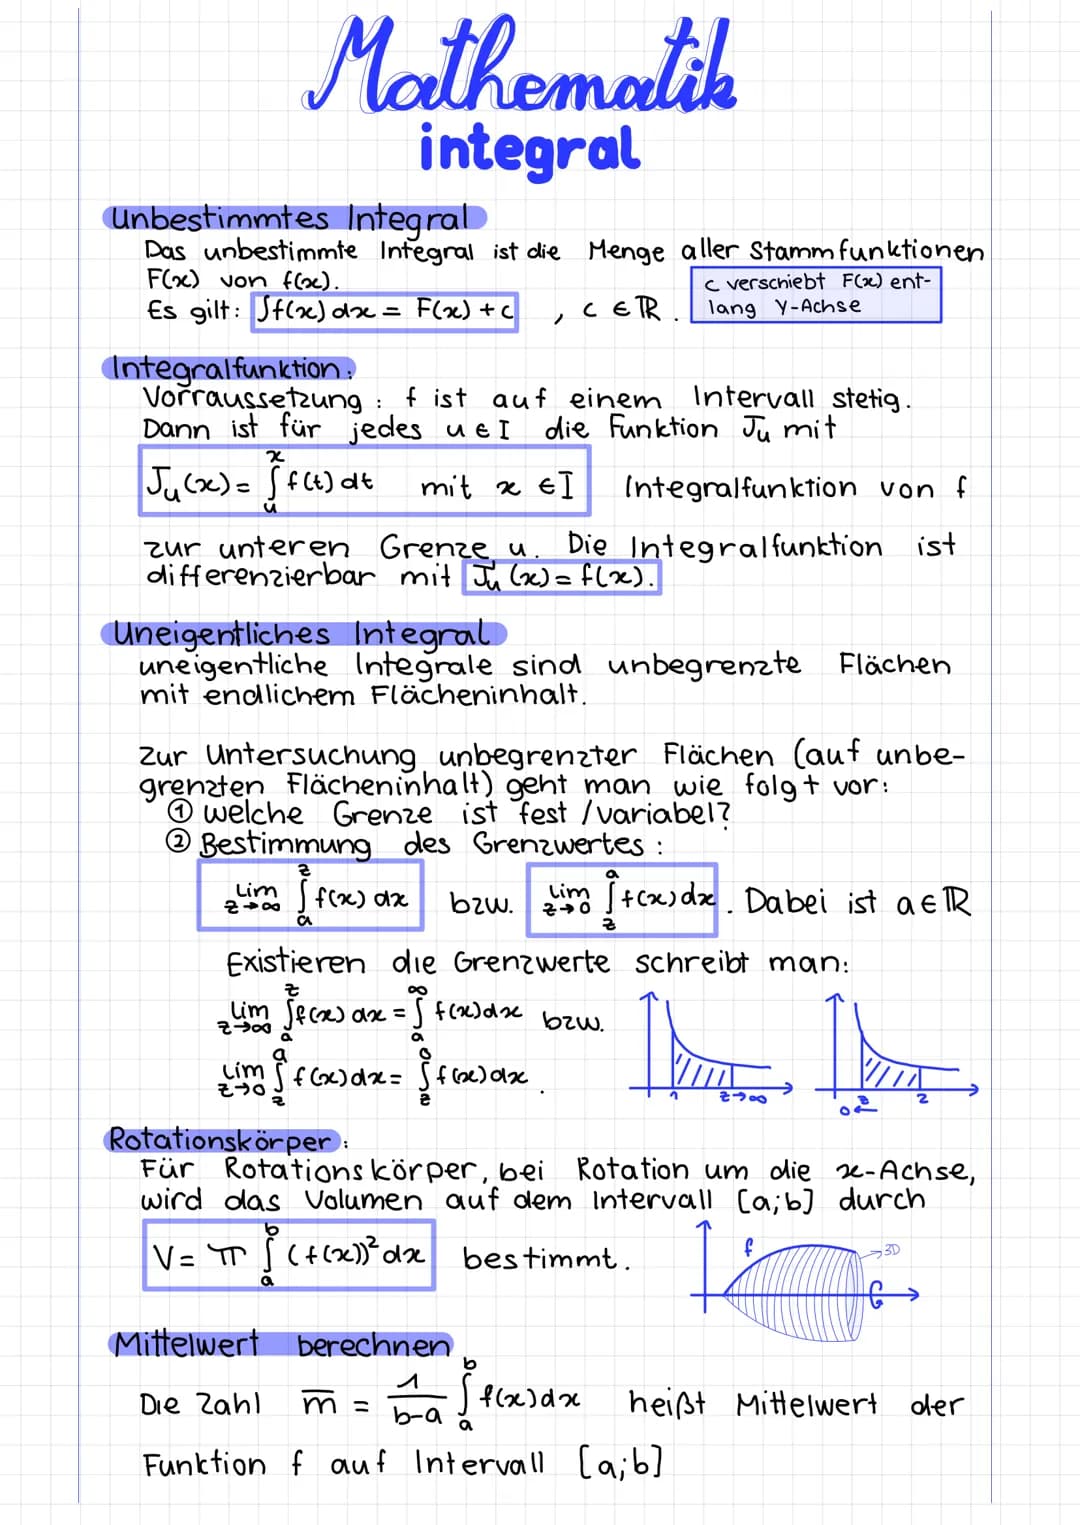 Mathematik
integral
Unbestimmtes Integral
Das unbestimmte Integral ist die Menge aller Stammfunktionen
F(x) von f(x).
c verschiebt F(x) ent-
lang Y-Achse
Es gilt: ∫f(x) dx = F(x) + c , c ∈ ℝ.
Integralfunktion:
Vorraussetzung: f ist auf einem Intervall stetig.
Dann ist für jedes u ∈ I die Funktion Jᵤ mit
Jᵤ(x) = ∫ᵤˣ f(t) dt mit x ∈ I Integralfunktion von f
zur unteren Grenze u. Die Integralfunktion ist
differenzierbar mit Jᵤ'(x) = f(x).
Uneigentliches Integral
uneigentliche Integrale sind unbegrenzte Flächen
mit endlichem Flächeninhalt.
Zur Untersuchung unbegrenzter Flächen (auf unbe-
grenzten Flächeninhalt) geht man wie folgt vor:
① welche Grenze ist fest / variabel?
② Bestimmung des Grenzwertes:
lim z→∞ ∫ₐᶻ f(x) dx bzw. lim z→0 ∫_z^a f(x) dx. Dabei ist a ∈ ℝ
Existieren die Grenzwerte schreibt man:
lim z→∞ ∫ₐᶻ f(x) dx = ∫ₐ^∞ f(x) dx bzw.
lim z→0 ∫_z^a f(x) dx = ∫_z^0 f(x) dx.
1 z→∞
0← z 2
Rotationskörper:
Für Rotationskörper, bei Rotation um die x-Achse,
wird das Volumen auf dem Intervall [a;b] durch
V = π ∫ₐᵇ (f(x))² dx bestimmt.
f
→3D
Mittelwert berechnen
Die Zahl m̅ = 1/(b-a) ∫ₐᵇ f(x) dx heißt Mittelwert der
Funktion f auf Intervall [a;b]